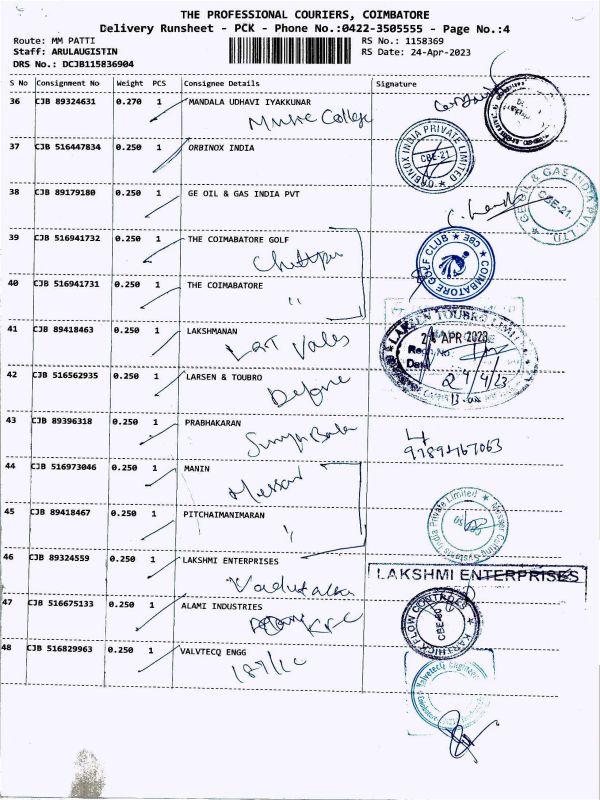 THE PROFESSIONAL COURIERS, COIMBATORE
Delivery Runsheet - PCK - Phone No.:0422-3505555 - Page No.:4
Route: MM PATTI
RS No.: 1158369
Staff: ARULAUGISTIN
RS Date: 24-Apr-2023
DRS No.: DCJB115836904
S No Consignment No Weight PCS Consignee Details Signature
36 CJB 89324631 0.270 1 MANDALA UDHAVI IYAKKUNAR
Music College
37 CJB 516447834 0.250 1 ORBINOX INDIA
ORBINOX INDIA PRIVATE LIMITED
CBE-21
38 CJB 89179180 0.250 1 GE OIL & GAS INDIA PVT
GE OIL & GAS INDIA PVT. LTD
CBE-21.
39 CJB 516941732 0.250 1 THE COIMABATORE GOLF
COIMBATORE GOLF CLUB ★ CBE ★
40 CJB 516941731 0.250 1 THE COIMABATORE
"
41 CJB 89418463 0.250 1 LAKSHMANAN
L&T Valves
LARSEN & TOUBRO LIMITED
24 APR 2023
Regn No.
Date
24/4/23
42 CJB 516562935 0.250 1 LARSEN & TOUBRO
43 CJB 89396318 0.250 1 PRABHAKARAN
44 CJB 516973046 0.250 1 MANIN
Messer
45 CJB 89418467 0.250 1 PITCHAIMANIMARAN
"
Messer Cutting Systems India Private Limited
46 CJB 89324559 0.250 1 LAKSHMI ENTERPRISES
LAKSHMI ENTERPRISES
47 CJB 516675133 0.250 1 ALAMI INDUSTRIES
KFC
KARTHICK FLOW CONTROLS
48 CJB 516829963 0.250 1 VALVTECQ ENGG
189/1C